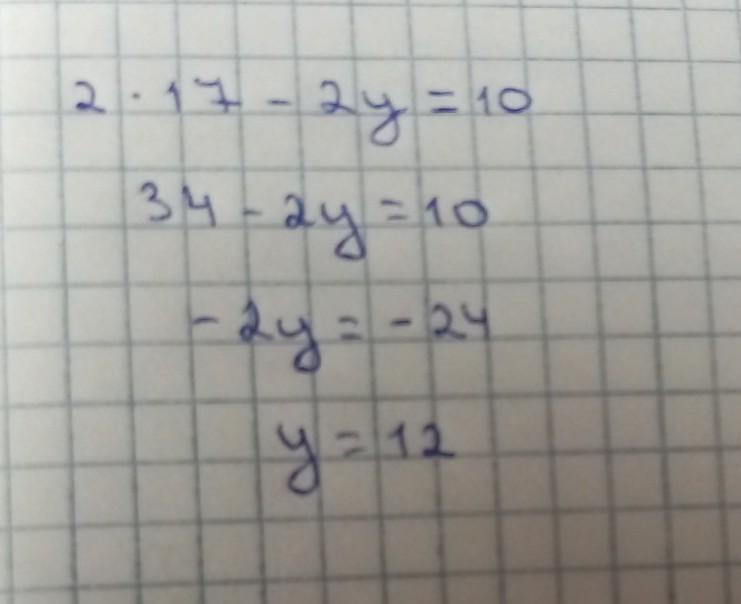 2 · 17 - 2y = 10
34 - 2y = 10
- 2y = - 24
y = 12